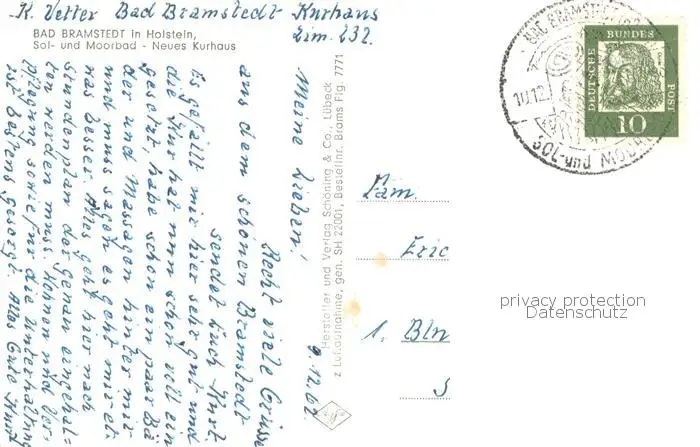 K. Vetter Bad Bramstedt Kurhaus
Zim. 232.
BAD BRAMSTEDT in Holstein,
Sol- und Moorbad - Neues Kurhaus
9.12.62
Meine Lieben!
Recht viele Grüsse
aus dem schönen Bramstedt
sendet Euch Kurt.
Es gefällt mir hier sehr gut und
die Kur hat nun schon voll ein
gesetzt, habe schon ein paar Bä
der und Massagen hinter mir
und muss sagen es geht mir et-
was besser. Alles geht hier nach
Stundenplan der genau eingehal=
ten werden muss. Wohnen und Ver-
pflegung sowie für die Unterhaltung
ist bestens gesorgt. Alles Gute Kurt
Hersteller und Verlag Schöning & Co., Lübeck
z Luftaufnahme, gen. SH 22001, Bestellnr. Brams Flg. 7771
BAD BRAMSTEDT
10.12.
SOL- und MOORBAD
DEUTSCHE BUNDESPOST
10
Fam.
Eric
1. Bln
S
privacy protection
Datenschutz